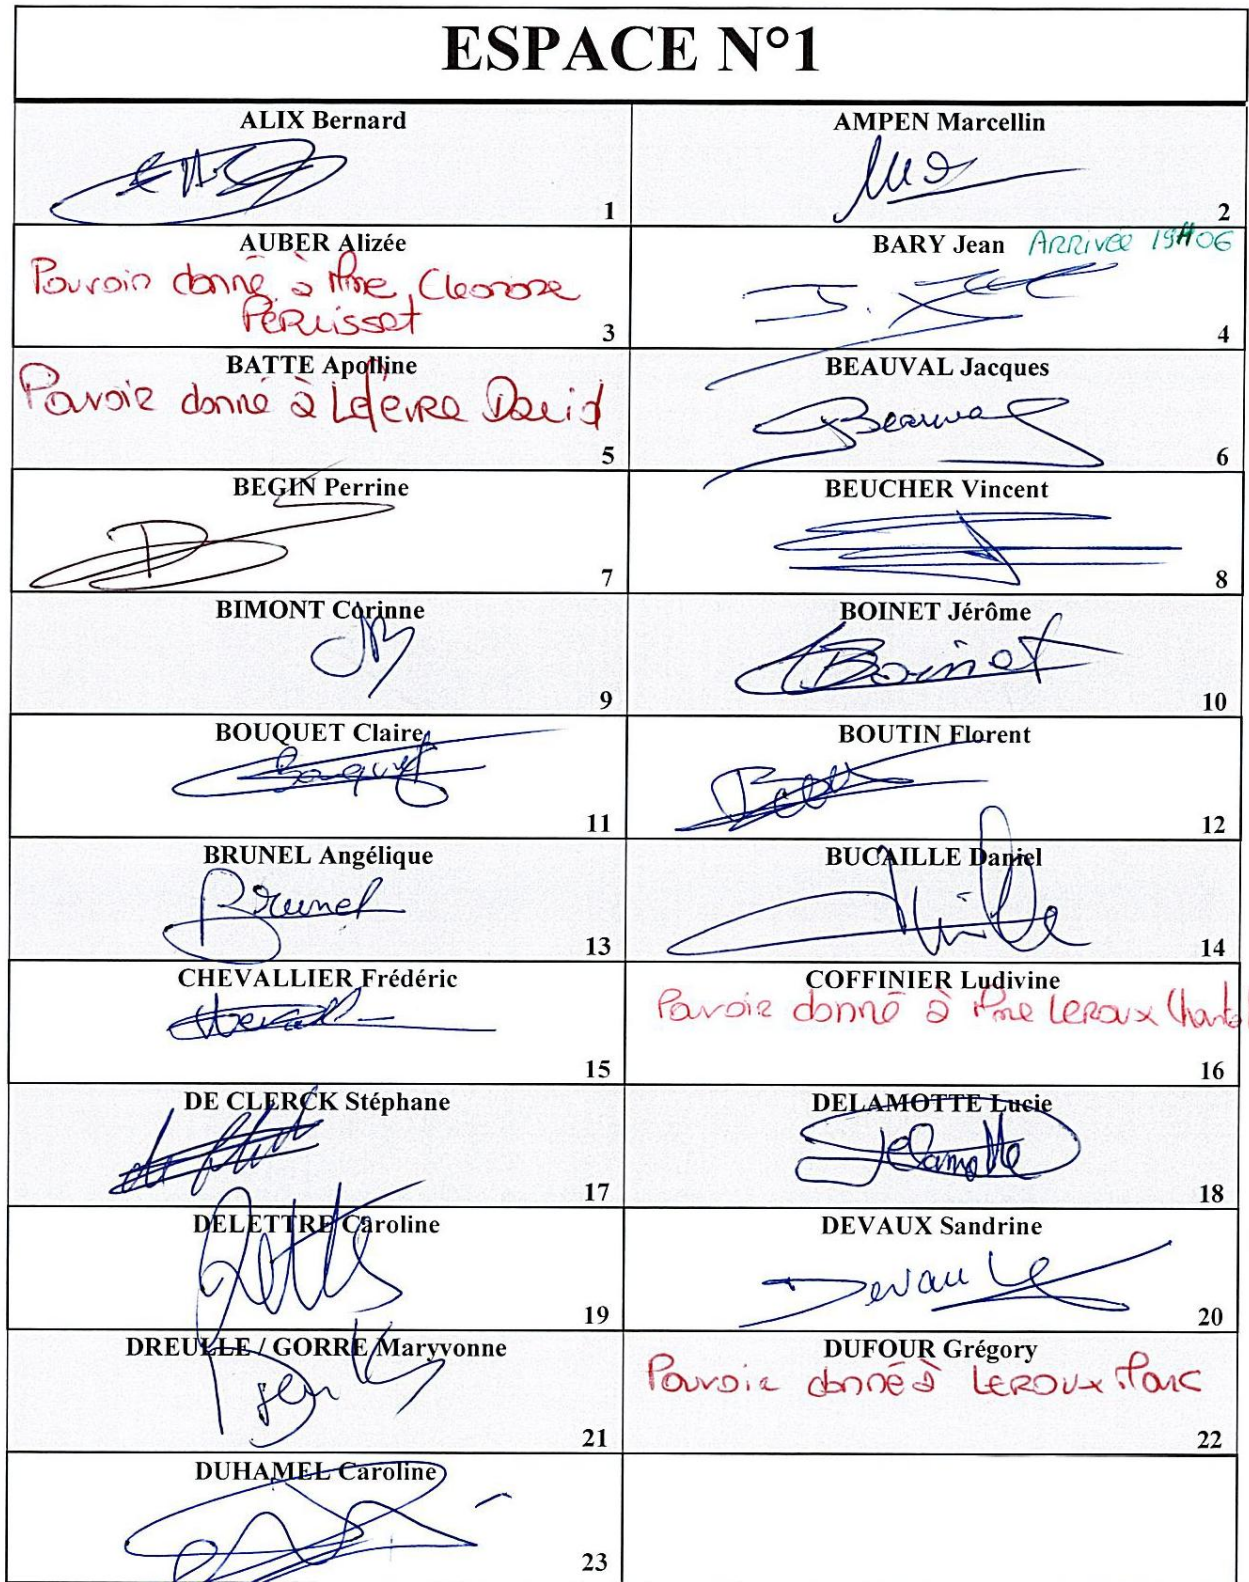 ESPACE N°1
ALIX Bernard
1
AMPEN Marcellin
2
AUBER Alizée
Pouvoir donné à Mme Cleonore
PERUISSET
3
BARY Jean ARRIVEE 19H06
J.
4
BATTE Apolline
Pouvoir donné à Lefevre David
5
BEAUVAL Jacques
Beauval
6
BEGIN Perrine
7
BEUCHER Vincent
8
BIMONT Corinne
9
BOINET Jérôme
Boinet
10
BOUQUET Claire
Bouquet
11
BOUTIN Florent
12
BRUNEL Angélique
Brunel
13
BUCAILLE Daniel
14
CHEVALLIER Frédéric
15
COFFINIER Ludivine
Pouvoir donné à Mme LEROUX Chantal
16
DE CLERCK Stéphane
17
DELAMOTTE Lucie
Delamotte
18
DELETTRE Caroline
19
DEVAUX Sandrine
Devaux
20
DREULLE / GORRE Maryvonne
21
DUFOUR Grégory
Pouvoir donné à LEROUX Marc
22
DUHAMEL Caroline
23